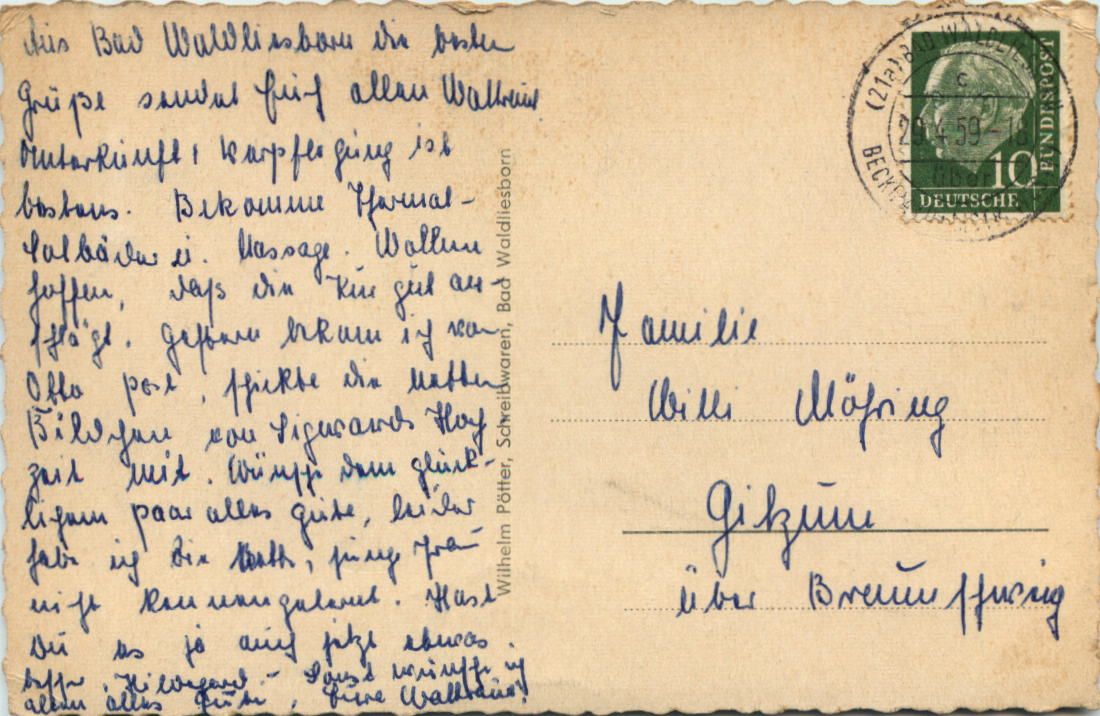 Aus Bad Waldliesborn die besten
Grüße sendet Euch allen Waltraut.
Unterkunft, Verpflegung ist
bestens. Bekomme Thermal-
Solbäder u. Massage. Wollen
hoffen, daß die Kur gut an-
schlägt. Gestern bekam ich von
Otto Post, schickte die netten
Bildchen von Sigwards Hoch
zeit mit. Wünsche dem glück-
lichen Paar alles Gute, leider
habe ich die nette, junge Frau
nicht kennengelernt. Hast
Du es ja auch jetzt etwas
Hildegard. – Sonst wünsche ich
allen alles Gute, Eure Waltraut.
Wilhelm Pötter, Schreibwaren, Bad Waldliesborn
(21a) BAD WALDLIESBORN
c
29.4.59-18
BECKUM
10
DEUTSCHE
BUNDESPOST
Familie
Willi Möhring
Gitzum
über Braunschweig